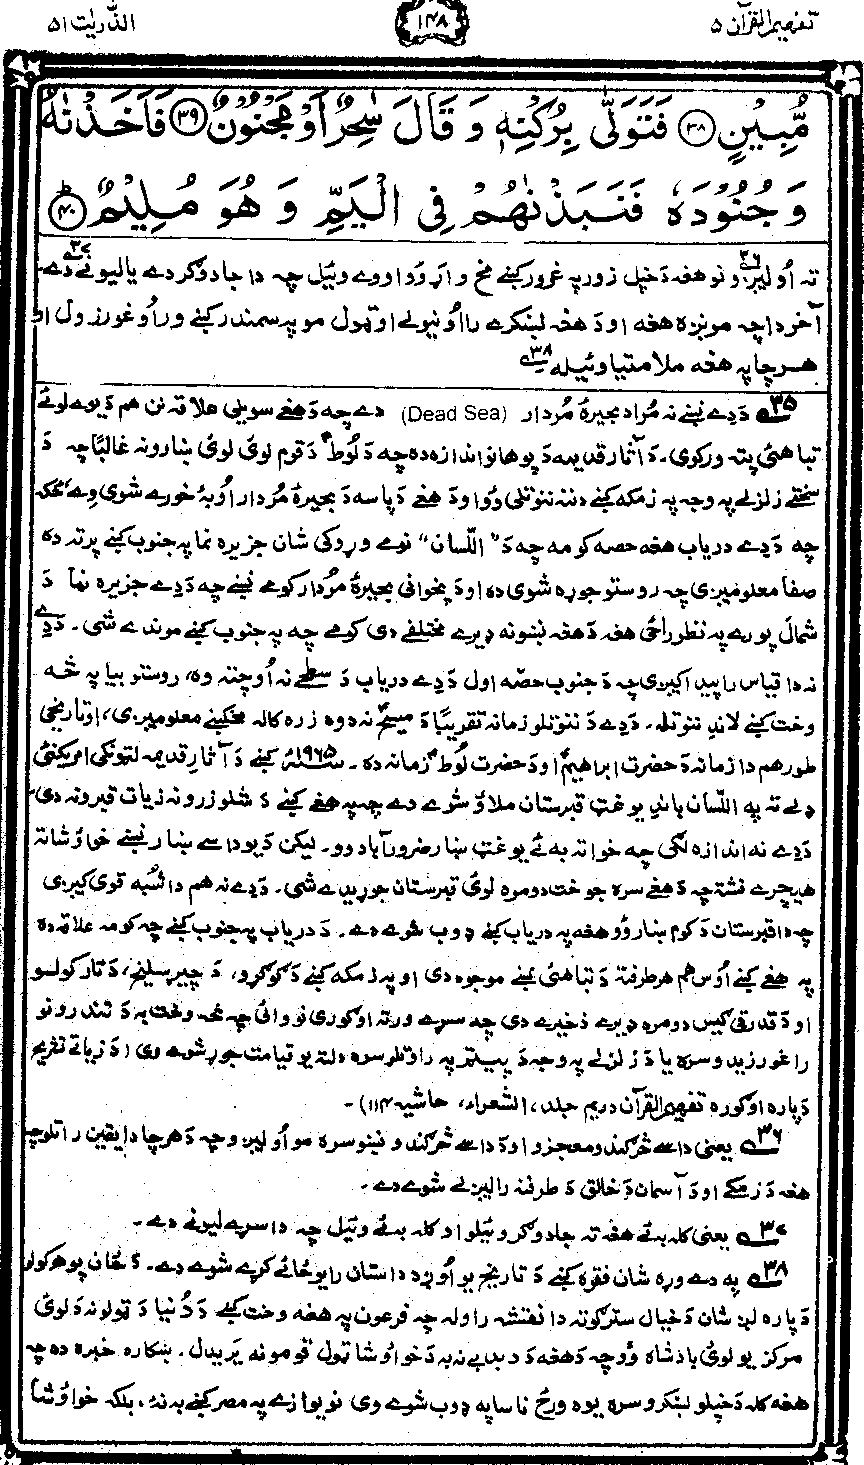 تفهیم القرآن ۵
۱۴۸
الذّٰریٰت ۵۱
مُّبِيْنٍ ۝۳۸ فَتَوَلّٰى بِرُكْنِهٖ وَ قَالَ سٰحِرٌ اَوْ مَجْنُوْنٌ ۝۳۹ فَاَخَذْنٰهُ
وَ جُنُوْدَهٗ فَنَبَذْنٰهُمْ فِى الْيَمِّ وَ هُوَ مُلِيْمٌ ۝۴۰ؕ
ته اُولېږو۳۶ نو هغه دَخپل زور په غرور کښے مخ واړوو او وے وئیل چه دا جادوګر دے یا لیونے دے۳۷۔
آخر دا چه مونږه هغه او دَ هغه لښکرے رااُونیولے او ټول مو په سمندر کښے وراُوغورزول او
هر چا په هغه ملامتیا وئیله۳۸
۳۵ دَدے نښے نه مُراد بحیرۀ مُردار (Dead Sea) دے چه دَهغے سویلی علاقه نن هم دَیوے لوئے
تباهئ پته ورکوی۔ دَ آثار قدیمه دَ پوهانو اندازه ده چه دَ لُوطؑ دَ قوم لوئ لوئ ښارونه غالبًا چه دَ
سختے زلزلے په وجه په زمکه کښے دننه ننوتلی دُو او دَ هغے دَپاسه دَ بحیرۀ مُردار اُوبۀ خورے شوی وے، ځکه
چه دَدے دریاب هغه حصه کومه چه دَ "اللّسان" نومے وړوکی شان جزیره نما په جنوب کښے پرته ده
صفا معلومېږی چه روستو جوړه شوی ده او دَ پخوانی بحیرۀ مُردار کومے نښے چه دَدے جزیره نما دَ
شمال پورے په نظر راځی هغه دَ هغه نښونه ډیرے مختلفے دی کومے چه په جنوب کښے موندے شی۔ دَدے
نه دا قیاس راپیدا کیږی چه دَ جنوب حصّه اول دَدے دریاب دَ سطحے نه اُوچته وه، روستو بیا په څه
وخت کښے لاندِ ننوتله۔ دَدے دَ ننوتلو زمانه تقریبًا دَ مسیحؑ نه دوه زره کاله مخکښے معلومېږی، او تاریخی
طور هم دا زمانه دَ حضرت ابراهیمؑ او دَ حضرت لُوطؑ زمانه ده۔ ۱۹۶۵ء کښے دَ آثار قدیمه لټونکی امریکنئ
ډلے ته په اللّسان باندِ یو غټ قبرستان ملاؤ شوے دے چه په هغے کښے دَ شلو زرو نه زیات قبرونه دی۔
دَدے نه اندازه لګی چه خوا ته به ئے یو غټ ښار ضرور آباد وو۔ لیکن دَ یو داسے ښار نښے خواؤشاته
هیچرے نشته چه دَهغے سره جوخت دومره لوئ قبرستان جوړیدے شی۔ دَدے نه هم دا شُبه قوی کیږی
چه دا قبرستان دَ کوم ښار وُو هغه په دریاب کښے ډوب شوے دے۔ دَ دریاب په جنوب کښے چه کومه علاقه ده
په هغے کښے اُوس هم هر طرفته دَ تباهئ نښے موجود دی او په زمکه کښے دَ ګوګړو، دَ چیړ سلیخ، دَ تارکولو
او دَ قدرتی ګیس دومره ډیرے ذخیرے دی چه سړے ورته اُوګوری نو وائی چه څه وخت به دَ تندرونو
راغورزیدو سره یا دَ زلزلے په وجه دَ پیټیر په راوتلو سره دلته یو قیامت جوړ شوے وی (دَ زیاتے تشریح
دَپاره اوګوره تفهیم القرآن دریم جلد، الشعراء، حاشیه ۱۱۴)۔
۳۶ یعنی داسے څرګند ومعجزو او دَ داسے څرګند و نښو سره مو اُولېږو چه دَهر چا دا یقین راتلو چه
هغه دَ زمکے او دَ آسمان دَ خالق دَ طرفنه رالېږلے شوے دے۔
۳۷ یعنی کله به ئے هغه ته جادوګر وئیلو او کله به ئے وئیل چه دا سړے لیونے دے۔
۳۸ په دے وړه شان فقره کښے دَ تاریخ یو اُوږد داستان رایوځائے کړے شوے دے۔ دَ ځان پوهه کولو
دَپاره لږ شان دَ خیال سترګو ته دا نقشه راوله چه فرعون په هغه وخت کښے دَ دُنیا دَ ټولو نه دَ لوئ
مرکز یو لوئ بادشاه وُو چه دَهغه دَ دبدبے نه به دَ خوا اُوشا ټول قومونه یریدل۔ ښکاره خبره ده چه
هغه کله دَ خپلو لښکرو سره یوه ورځ ناساپه ډوب شوے وی نو یوازے په مصر کښے به نه، بلکه خواؤشا